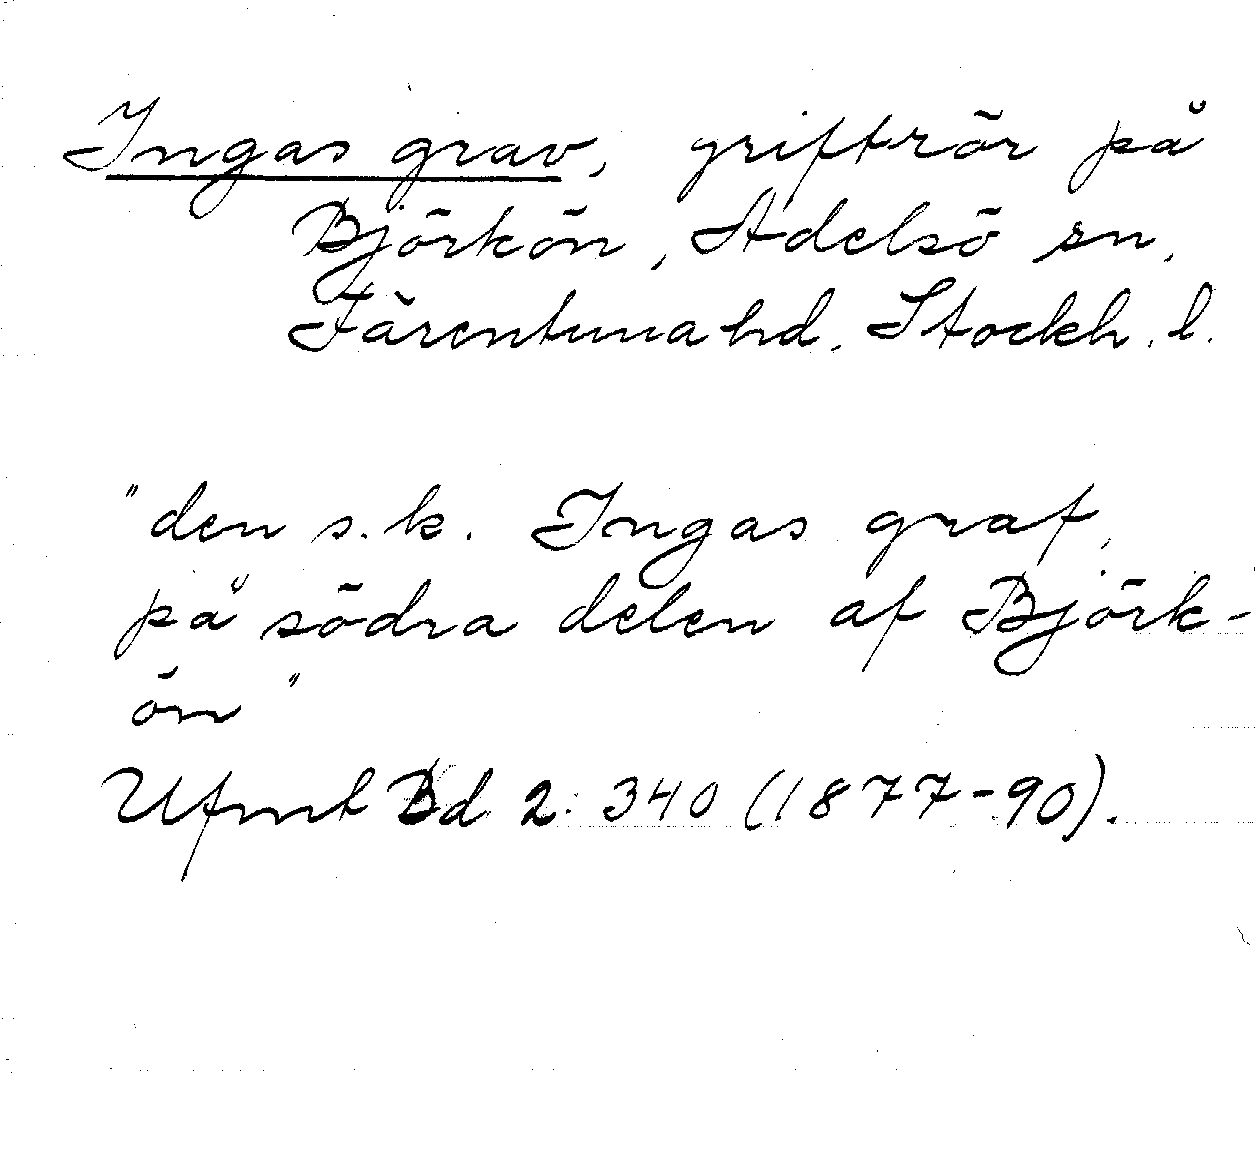 Ingas grav, griftrör på
Björkön, Adelsö sn,
Färentuna hd. Stockh. l.
"den s.k. Ingas graf,
på södra delen af Björk-
ön"
Ufmt Bd 2: 340 (1877-90).